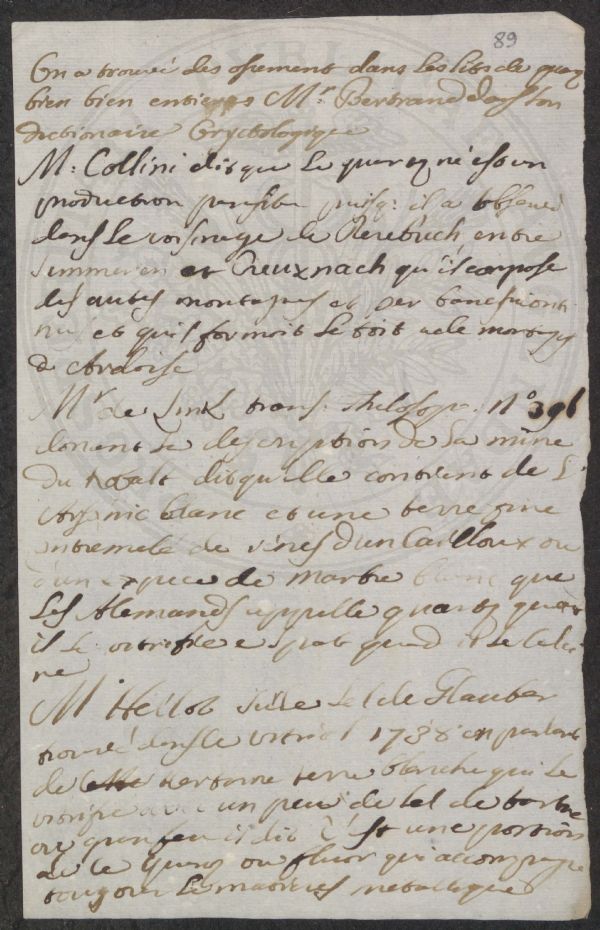 89
On a trouvé des osement dans les lits de quarz
bien bien entiers Mr. Bertrand dans son
dictionaire Oryctologique
M: Collini dit que le quarz n'est un
production parasite puisq: il a observé
dans le voisinage de Rerebuch entre
Simmeren et Creuxnach qu'il compose
des autes montagnes et
et qu'il formoit le toit de
d'Ardoise
Mr de Link trans: Philosop. N° 396
donent la description de la mine
du Kobalt dit qu'elle contient de L'
Arsenic blanc et une terre fine
entremele de vénes d'un Cailloux ou
d'un espece de marbre blanc que
Les Alemands appelle quartz quand
il se vitrifie e spat quand il se calci
ne
M Hellot sur le sel de Glauber
trouvé dans le vitriol 1738 en parlant
de certaine terre blanche qui se
vitrifie avec un peu de sel de tartre
ou gran feu il dit C'est une portion
de ce Quarz ou fluor qui accompagne
toujour le matieres metallique